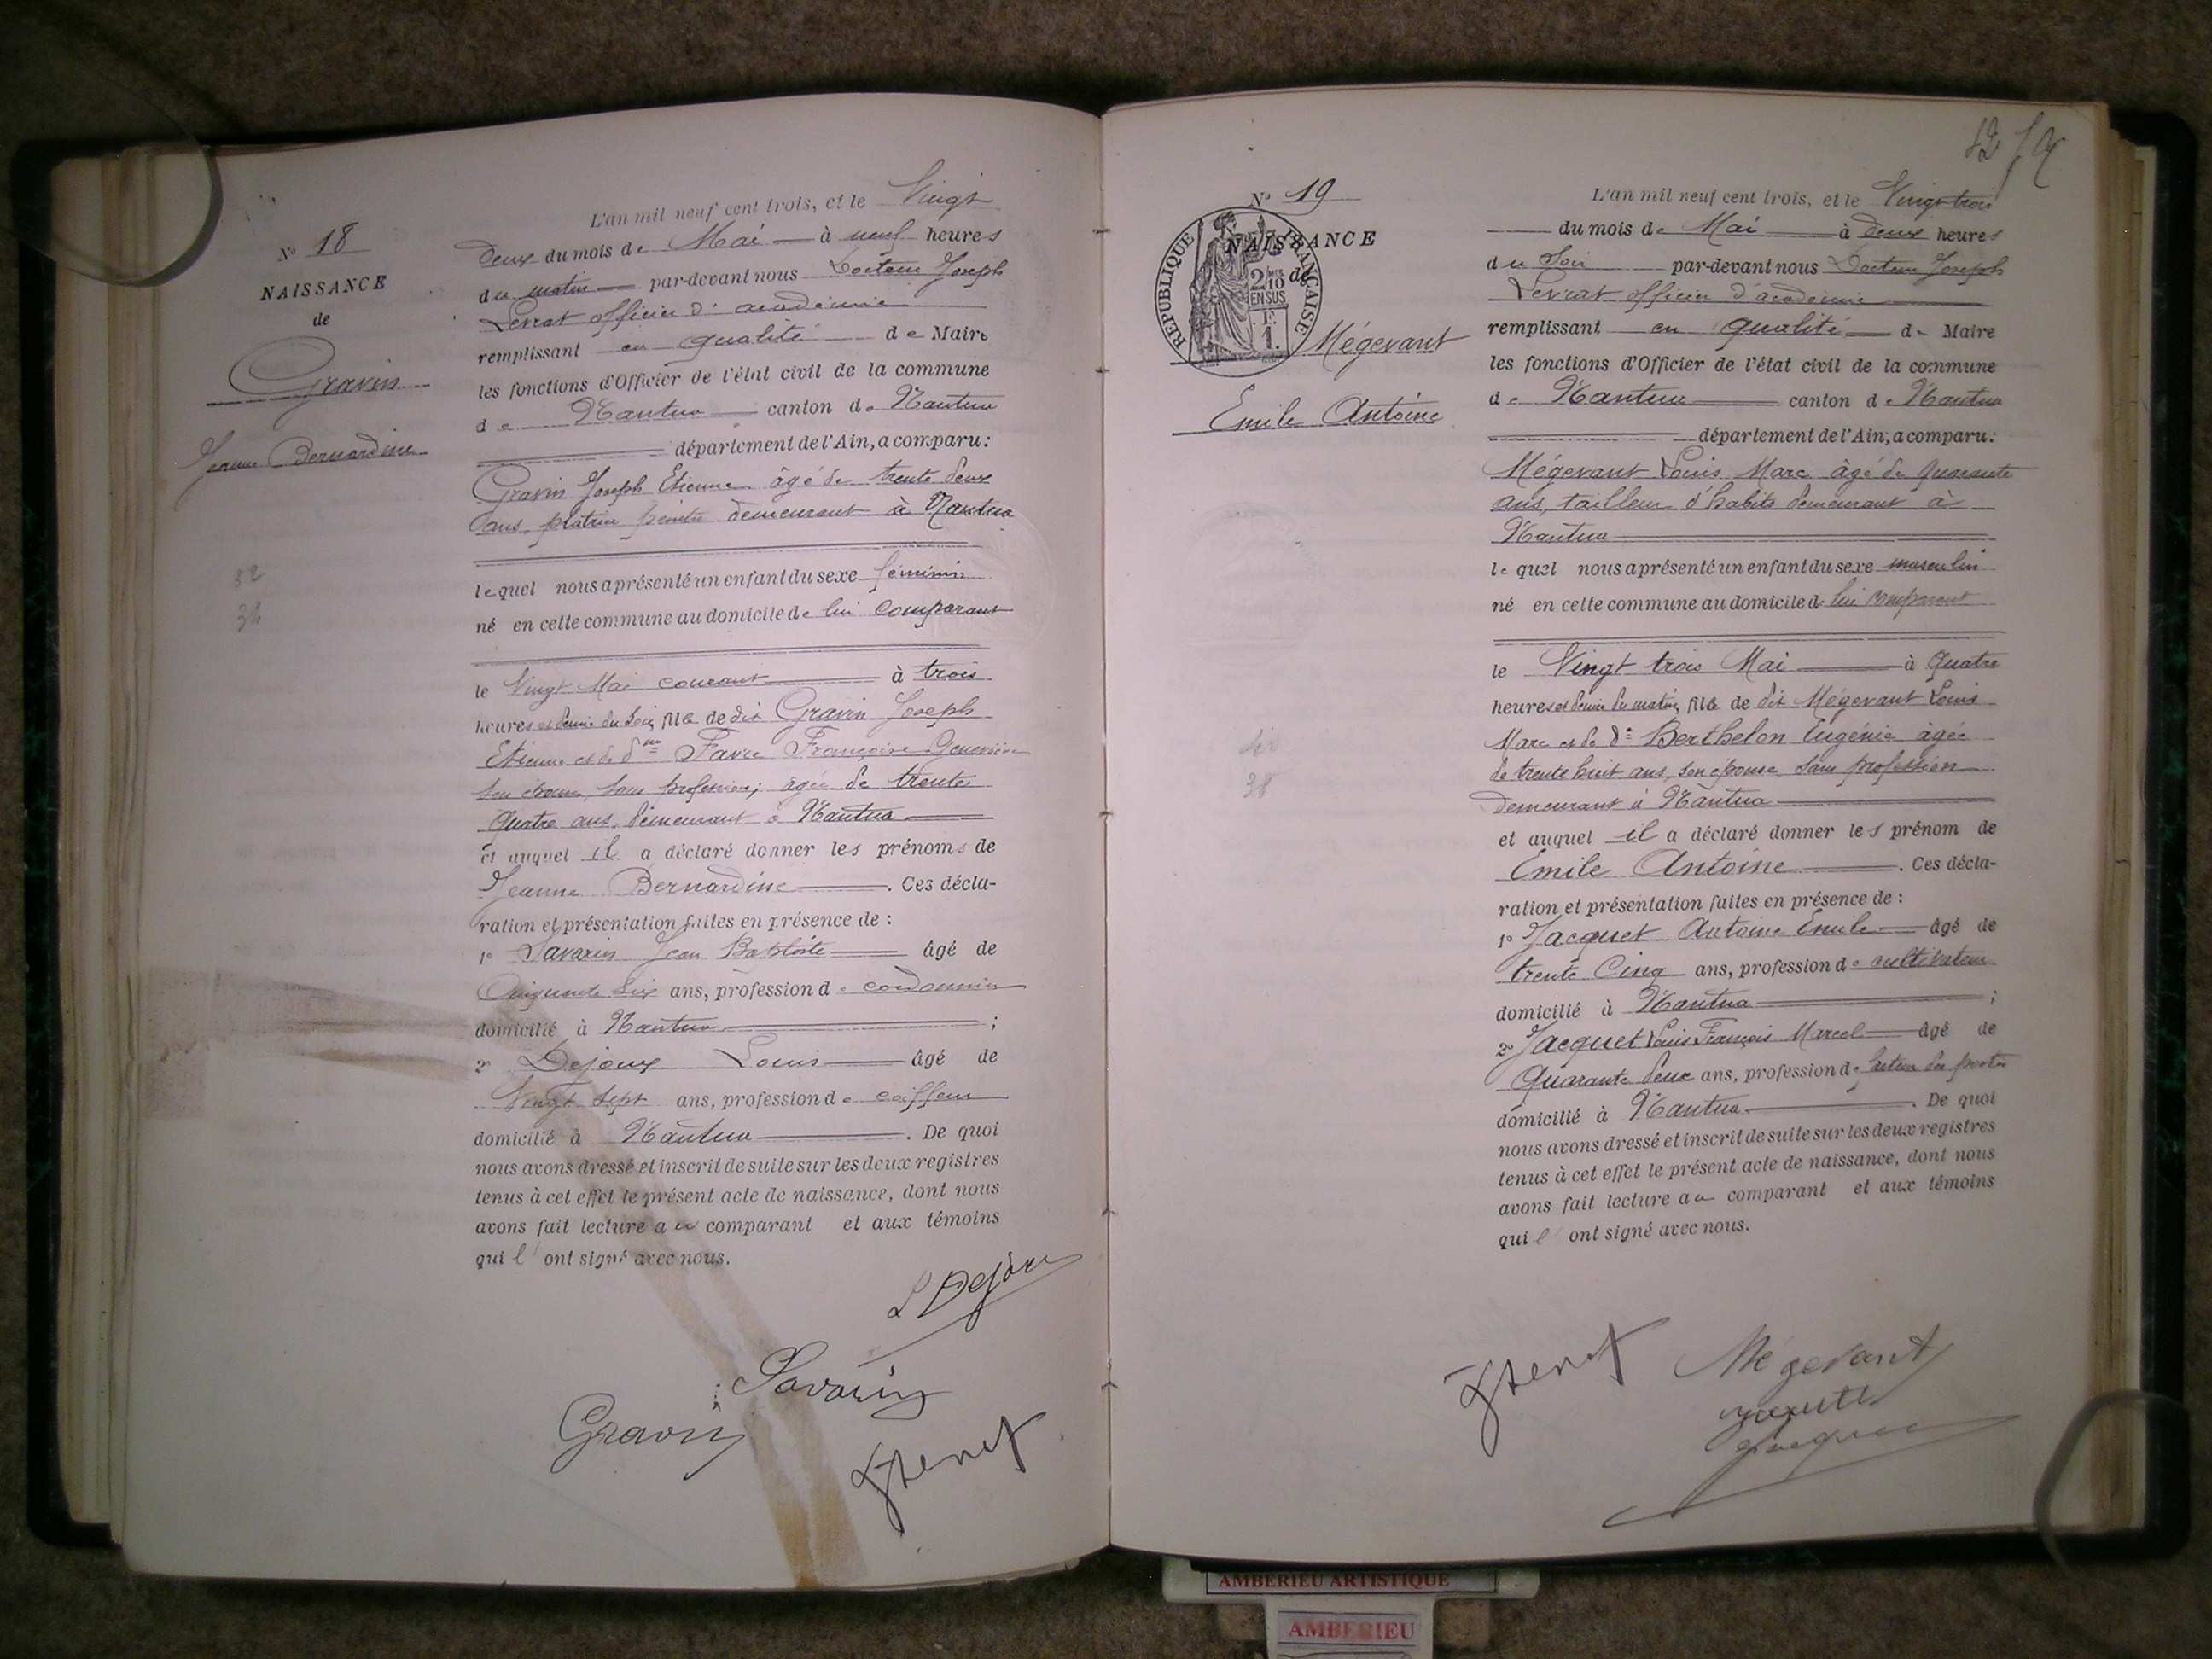 N° 18
NAISSANCE
de
Gravin
Jeanne Bernardine
32
34
L'an mil neuf cent trois, et le Vingt
deux du mois de Mai à neuf heures
du matin par-devant nous Docteur Joseph
Levrat officier d'académie
remplissant en qualité de Maire
les fonctions d'Officier de l'état civil de la commune
de Nantua canton de Nantua
département de l'Ain, a comparu :
Gravin Joseph Etienne âgé de trente deux
ans, plâtrier peintre demeurant à Nantua
lequel nous a présenté un enfant du sexe féminin
né en cette commune au domicile de lui comparant
le Vingt Mai courant à trois
heures et demie du soir, fille de dit Gravin Joseph
Etienne et de dme Favre Françoise Geneviève
son épouse, sans profession, agée de trente
quatre ans, demeurant à Nantua
et auquel il a déclaré donner les prénoms de
Jeanne Bernardine. Ces décla-
ration et présentation faites en présence de :
1° Savarin Jean Baptiste âgé de
Cinquante six ans, profession de cordonnier
domicilié à Nantua ;
2° Dejoux Louis âgé de
Vingt sept ans, profession de coiffeur
domicilié à Nantua. De quoi
nous avons dressé et inscrit de suite sur les deux registres
tenus à cet effet le présent acte de naissance, dont nous
avons fait lecture au comparant et aux témoins
qui l'ont signé avec nous.
L Dejoux
Savarin
Gravin
N° 19
NAISSANCE
de
REPUBLIQUE FRANÇAISE
2/10
EN SUS
1.
Mégevant
Emile Antoine
38
L'an mil neuf cent trois, et le Vingt trois
du mois de Mai à deux heures
du Soir par-devant nous Docteur Joseph
Levrat officier d'académie
remplissant en qualité de Maire
les fonctions d'Officier de l'état civil de la commune
de Nantua canton de Nantua
département de l'Ain, a comparu :
Mégevant Louis Marc âgé de quarante
ans, tailleur d'habits demeurant à
Nantua
lequel nous a présenté un enfant du sexe masculin
né en cette commune au domicile de lui comparant
le Vingt trois Mai à quatre
heures et demie du matin, fils de dit Mégevant Louis
Marc et de de Berthelon Eugénie agée
de trente huit ans, son épouse, sans profession
demeurant à Nantua
et auquel il a déclaré donner les prénom de
Emile Antoine. Ces décla-
ration et présentation faites en présence de :
1° Jacquet Antoine Emile âgé de
trente Cinq ans, profession de cultivateur
domicilié à Nantua ;
2° Jacquet Louis François Marcel âgé de
Quarante deux ans, profession de facteur des postes
domicilié à Nantua. De quoi
nous avons dressé et inscrit de suite sur les deux registres
tenus à cet effet le présent acte de naissance, dont nous
avons fait lecture au comparant et aux témoins
qui l'ont signé avec nous.
Mégevant
AMBERIEU ARTISTIQUE
AMBERIEU